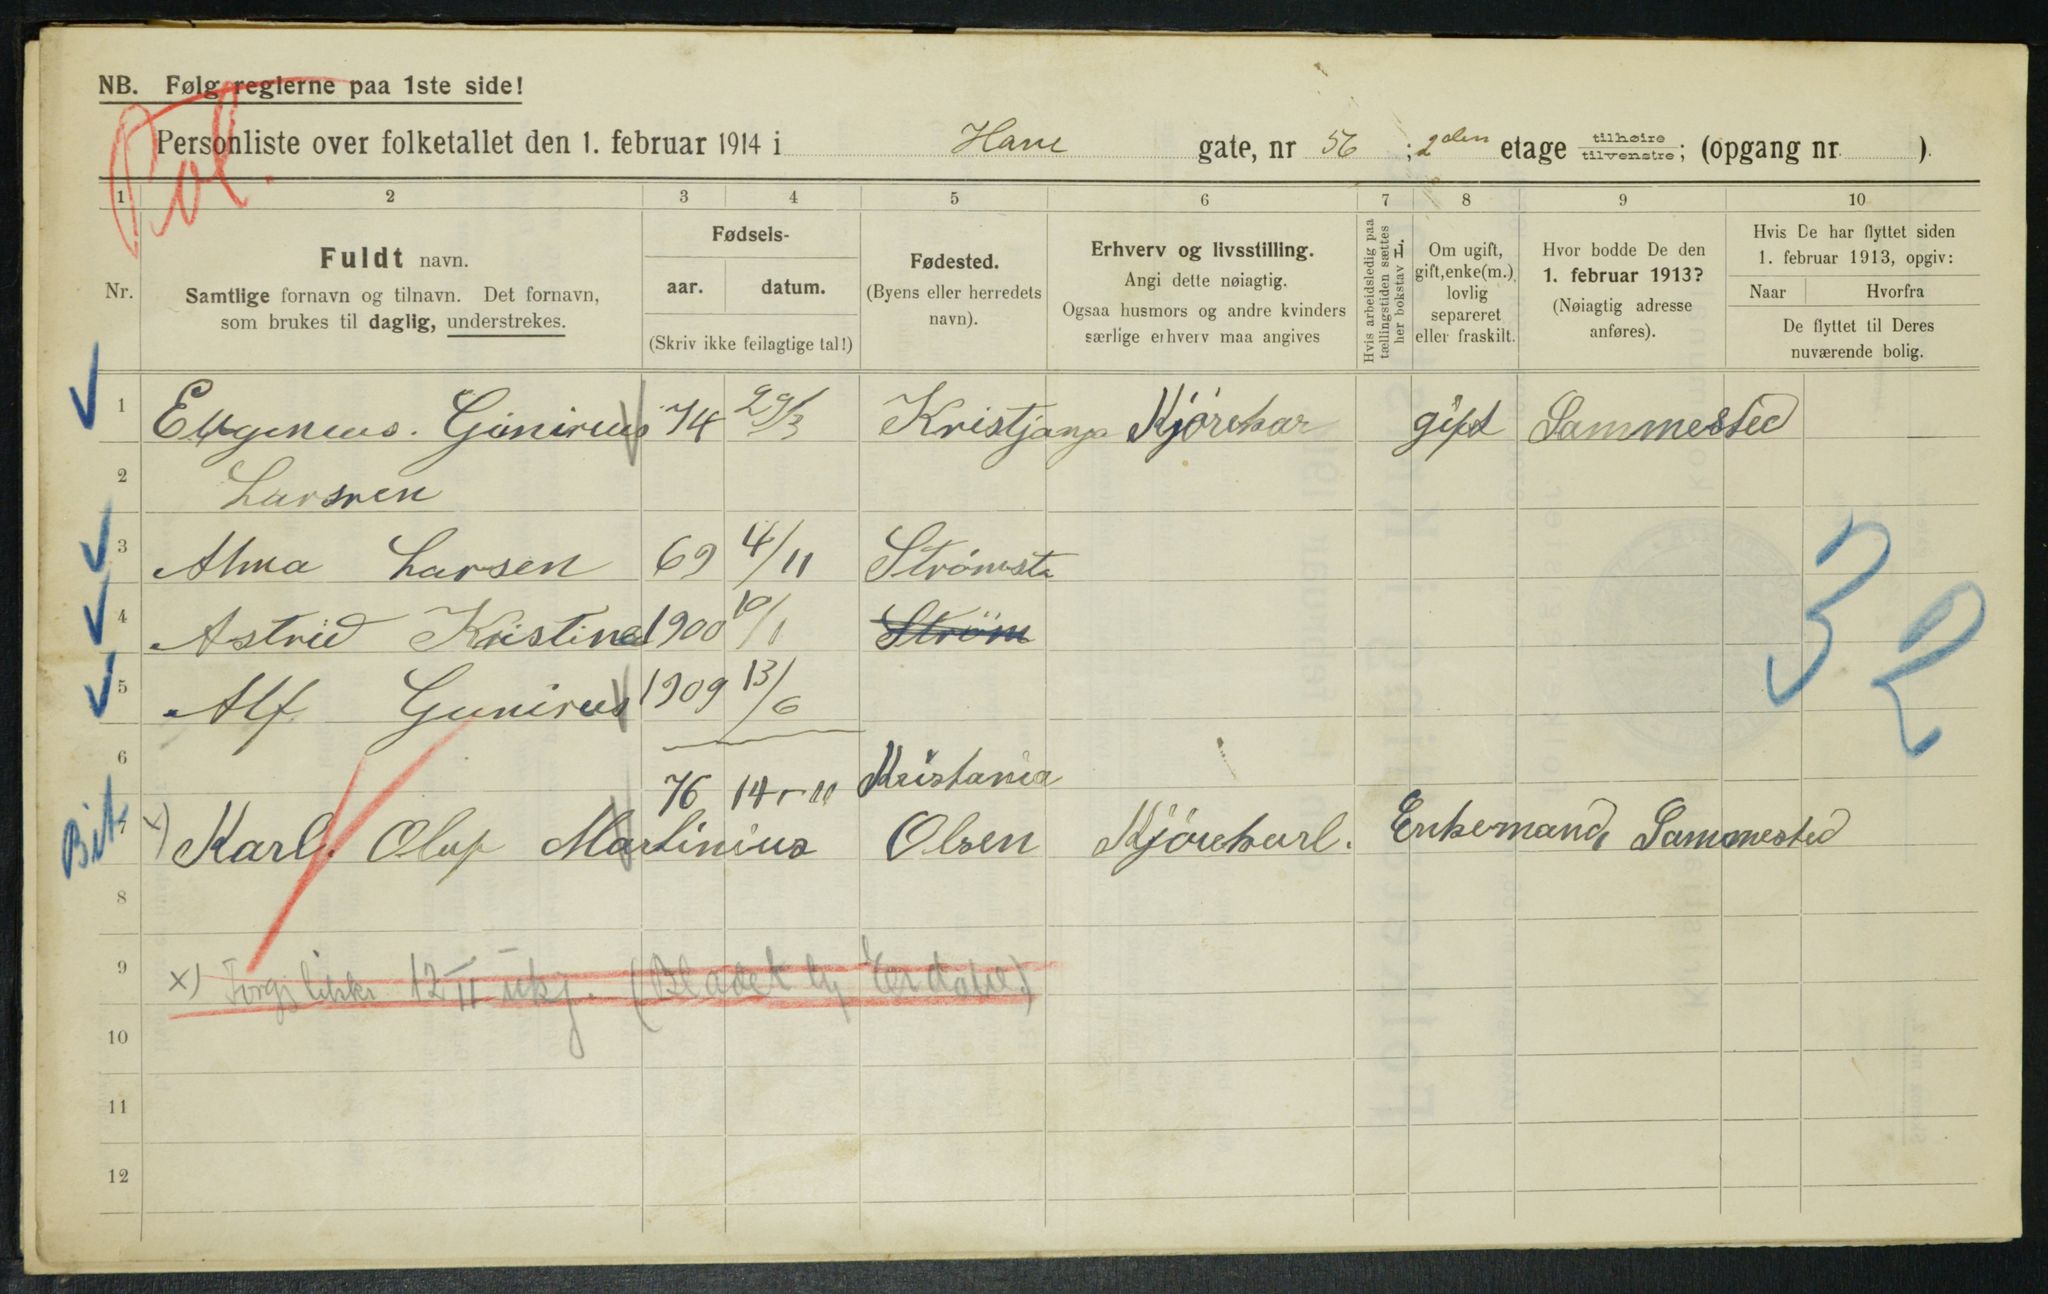 NB. Følg reglerne paa 1ste side!
Pol.
Personliste over folketallet den 1. februar 1914 i Have gate, nr 56 ; 2den etage tilhøire / tilvenstre; (opgang nr ).
1 2 3 4 5 6 7 8 9 10
Nr.
Fuldt navn.
Samtlige fornavn og tilnavn. Det fornavn,
som brukes til daglig, understrekes.
Fødsels-
aar. datum.
(Skriv ikke feilagtige tal!)
Fødested.
(Byens eller herredets
navn).
Erhverv og livsstilling.
Angi dette nøiagtig.
Ogsaa husmors og andre kvinders
særlige erhverv maa angives
Hvis arbeidsledig paa
tællingstiden sættes
her bokstav L.
Om ugift,
gift, enke(m.),
lovlig
separeret
eller fraskilt.
Hvor bodde De den
1. februar 1913?
(Nøiagtig adresse
anføres).
Hvis De har flyttet siden
1. februar 1913, opgiv:
Naar Hvorfra
De flyttet til Deres
nuværende bolig.
1 Eugineus. Ginirius 74 29/3 Kristjanja Kjørekar gift Sammested
2 Larsen
3 Alma Larsen 69 4/11 Strømsta
4 Astrid Kristine 1900 10/1 Strøm
5 Alf Gunirus 1909 13/6
6 76 14-11 Kristania
7 x) Karl. Oluf Martinius Olsen Kjørekarl. Enkemand, Sammested
Bit
8
9 x) 12/II (Bladet
10
11
12
32